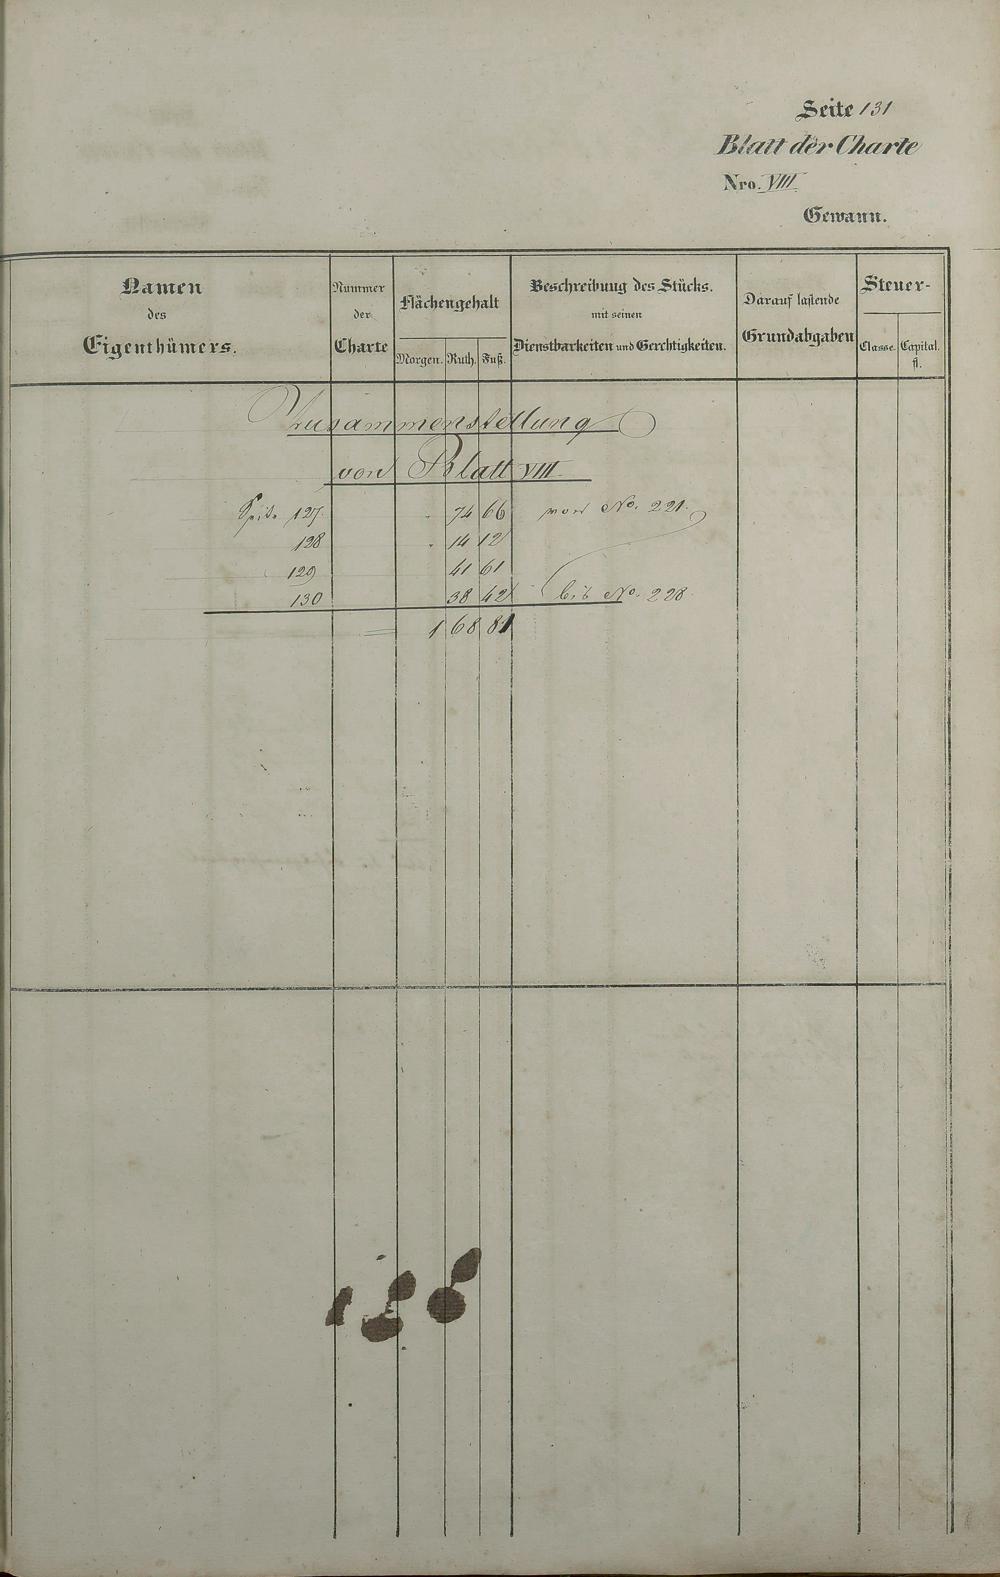 Seite 131
Blatt der Charte
Nro. VIII
Gewann.
Namen des Eigenthümers.
Nummer der Charte
Flächengehalt
Morgen. Ruth. Fuß.
Beschreibung des Stücks. mit seinen Dienstbarkeiten und Gerechtigkeiten.
Darauf lastende Grundabgaben
Steuer-
Classe. Capital. fl.
Zusammenstellung
von Blatt VIII.
Seite 127. . 74 66 von No. 221.
128 . 14 12
129 41 61
130 38 42 bis No. 228.
= 1 68 81